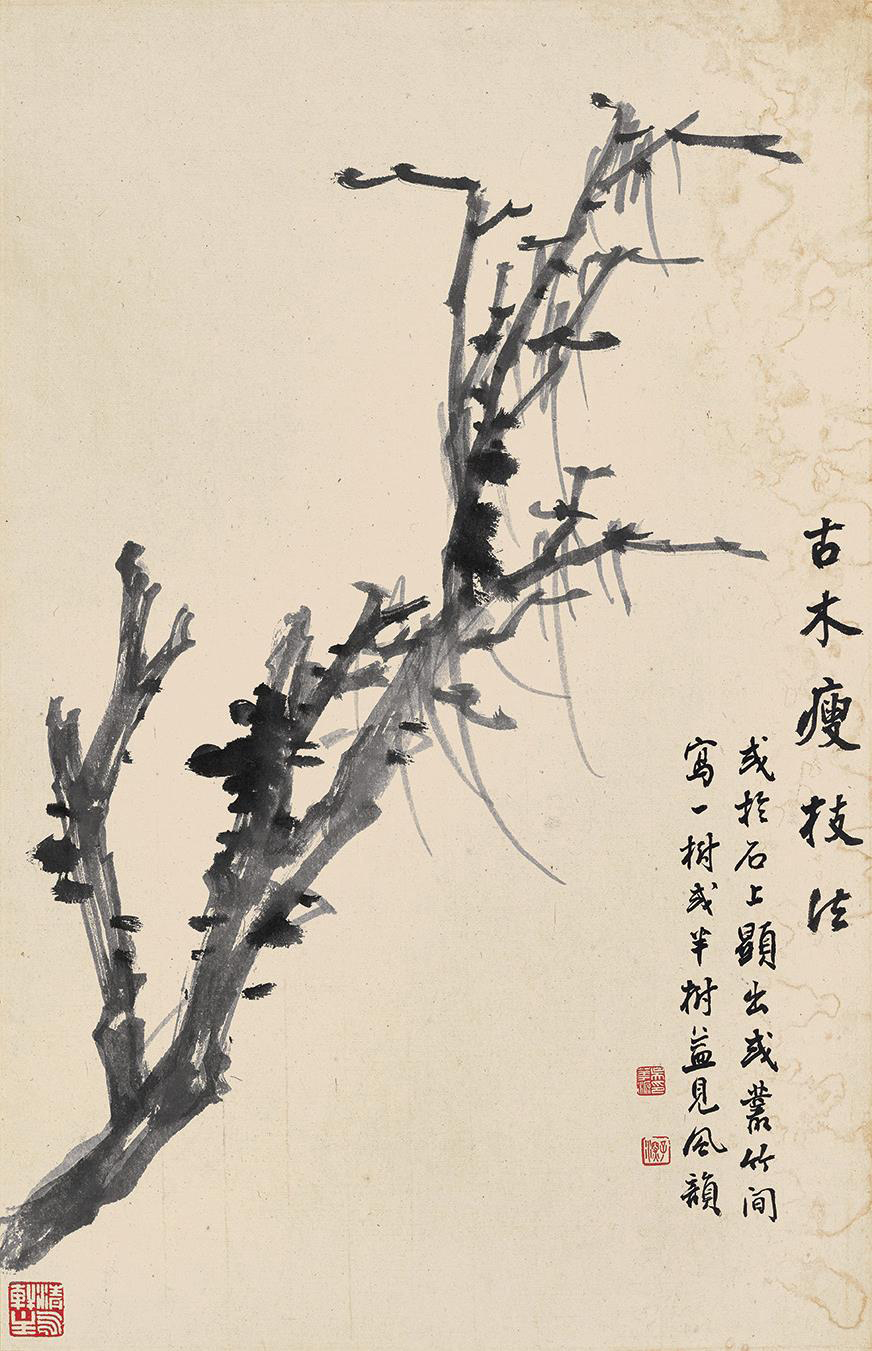 古木瘦枝法
或於石上顯出或叢竹间
寫一樹或半樹益見風韻